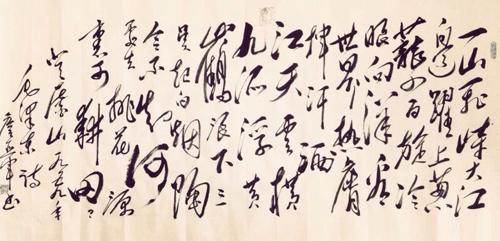 一山飞峙大江
边跃上葱
茏四百旋冷
眼向洋看
世界热肤
挥汗洒
江天雲横
九派浮黄
鹤浪下三
吴起白烟陶
令不知何
处去桃花源
里可耕田
登庐山一九五九年
毛泽东诗